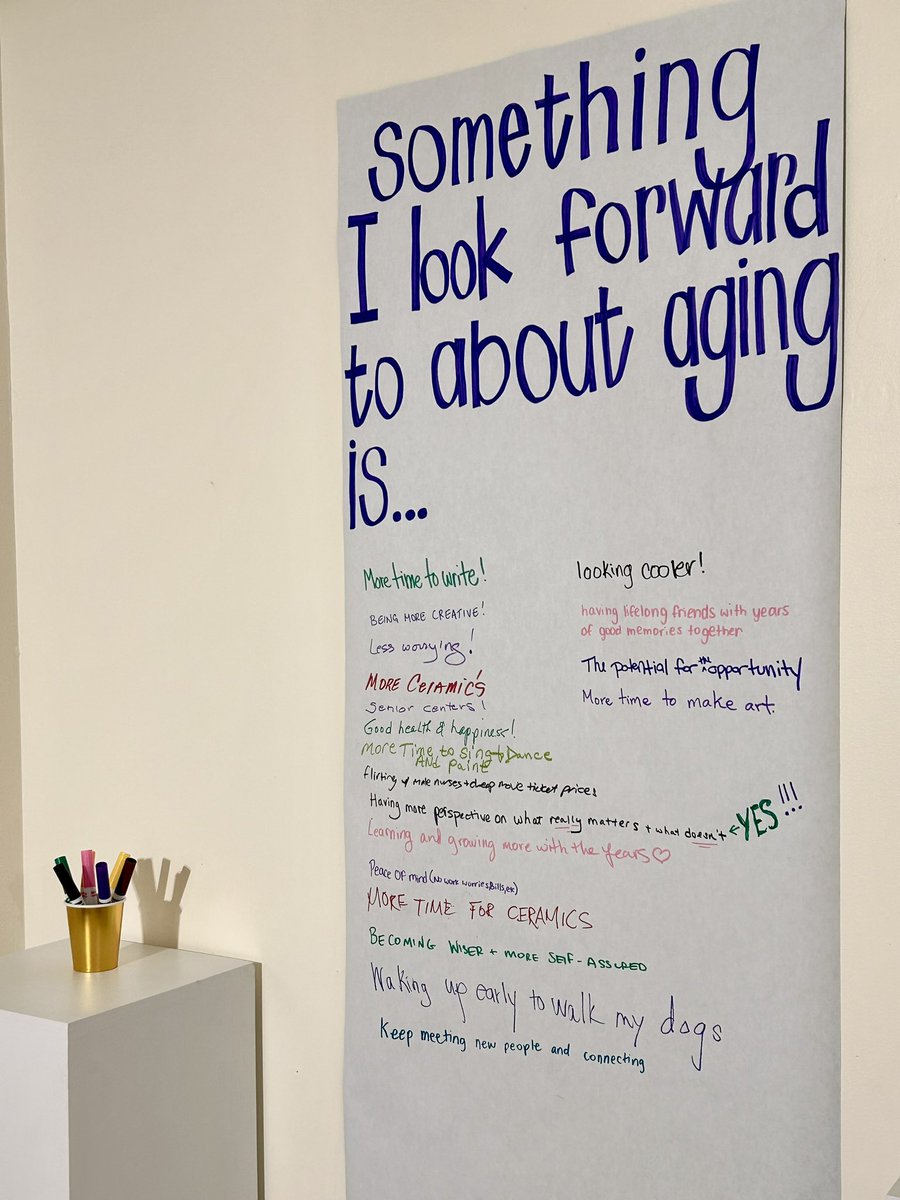 Something
I look forward
to about aging
is...
More time to write!
BEING MORE CREATIVE!
Less worrying!
MORE CERAMIC'S
Senior centers!
Good health & happiness!
More Time to Sing + Dance
AND paint
flirting w/ male nurses + cheap movie ticket prices
Having more perspective on what really matters + what doesn't ← YES!!!
Learning and growing more with the years ♡
Peace of mind (No work worries, bills, etc)
MORE TIME FOR CERAMICS
BECOMING WISER + MORE SELF-ASSURED
Waking up early to walk my dogs
Keep meeting new people and connecting
looking cooler!
having lifelong friends with years
of good memories together
The potential for the opportunity
More time to make art.